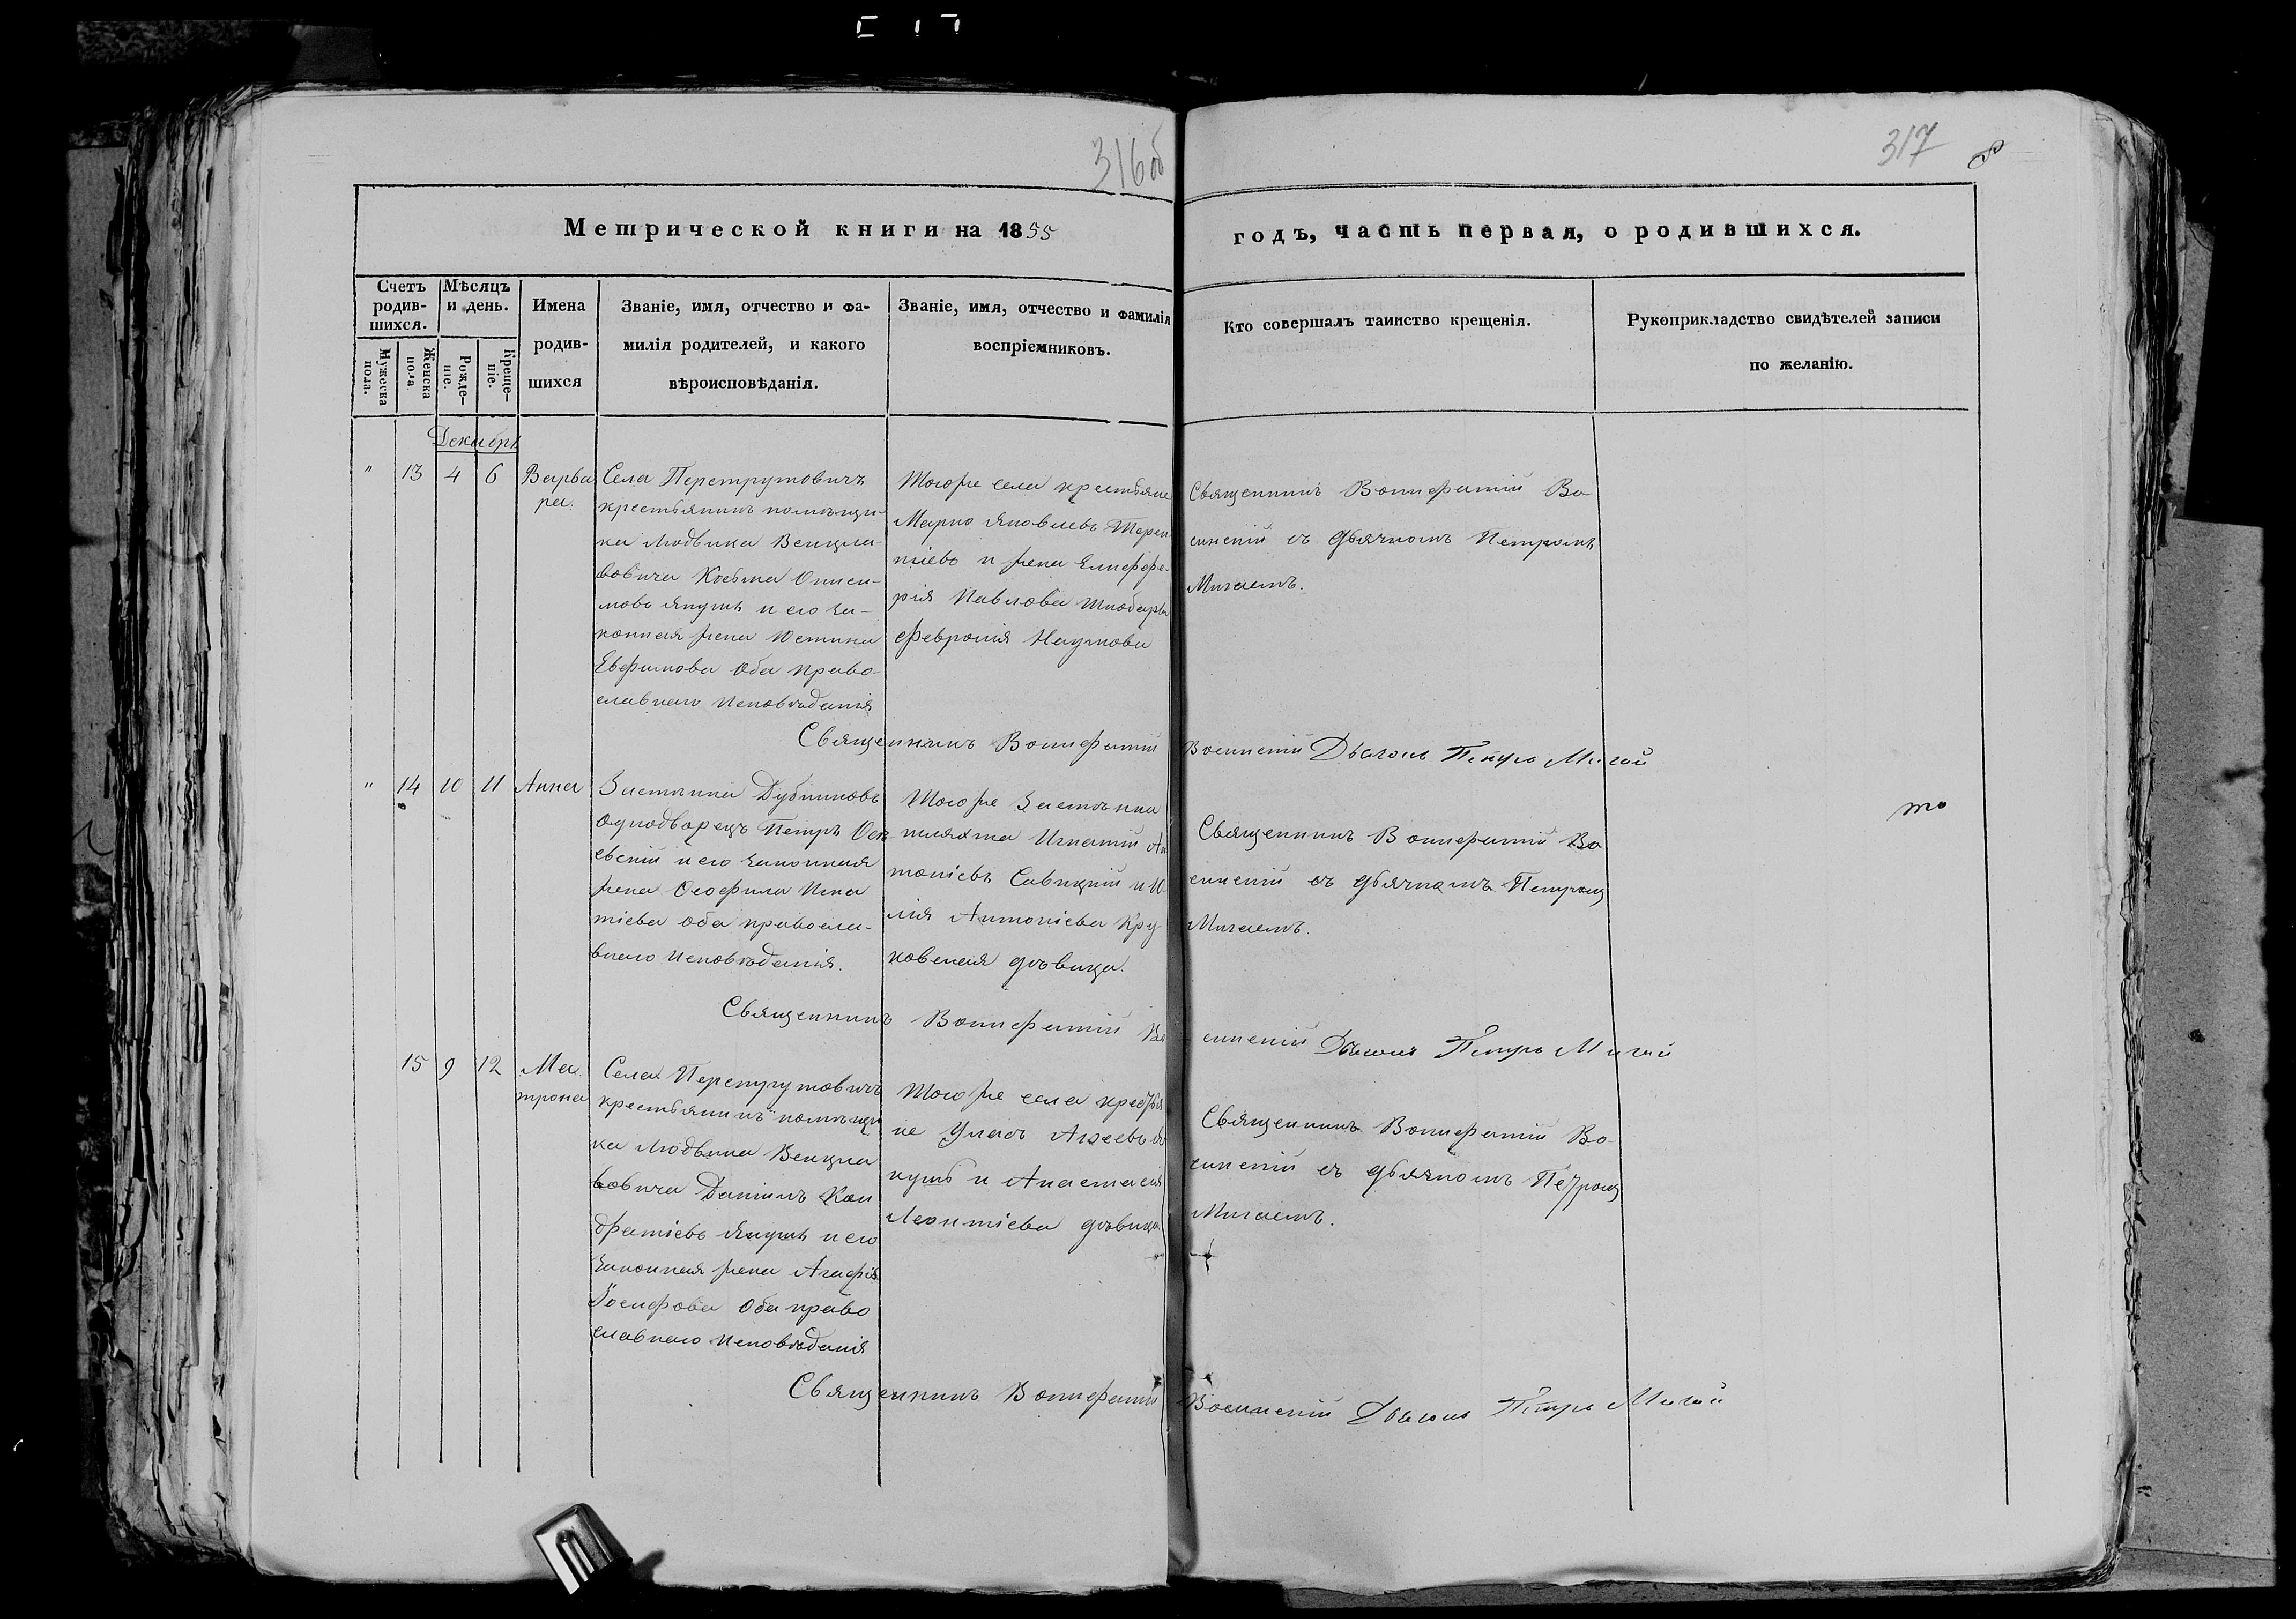 316об
317
8
Метрической книги на 1855
годъ, часть первая, о родившихся.
Счетъ родив-шихся.
Мѣсяцъ и день.
Мужеска пола.
Женска пола.
Рожде-ніе.
Креще-ніе.
Имена
родив-
шихся
Званіе, имя, отчество и фа-
милія родителей, и какого
вѣроисповѣданія.
Званіе, имя, отчество и фамилія
воспріемниковъ.
Кто совершалъ таинство крещенія.
Рукоприкладство свидѣтелей записи
по желанію.
Декабрь
" 13 4 6
Варва
ра.
Села Перетрутовичъ
крестьянинъ помѣщи-
ка Людвика Венцла-
вовича Косьма Ониси-
мовъ Якушъ и его за-
конная жена Устина
Евфимова Оба право-
славнаго Исповѣданія
Тогоже села крестьяне
Марко Яковлевъ Терен
тіевъ и жена Елисефе-
рія Павлова
Февронія Наумова
Священникъ Вонифатій Во-
синскій съ дьячкомъ Петромъ
Мигаемъ.
Священникъ Вонифатій Восинскій Дьячокъ Петръ Мигай
" 14 10 11 Анна
Застѣнка Дубниковъ
Однодворецъ Петръ Оск
евскій и его законная
жена Феофила Игна
тіева оба правосла-
внаго Исповѣданія.
Тогоже Застѣнка
шляхта Игнатій Ан
тоніевъ Савицкій и Ю
лія Антоніева Кру
ковская дѣвица.
Священникъ Вонифатій Во
синскій съ дьячкомъ Петромъ
Мигаемъ.
то
Священникъ Вонифатій Во синскій Дьячокъ Петръ Мигай
15 9 12
Ма
трона
Села Перетрутовичъ
крестьянинъ помѣщи
ка Людвика Венцла
вовича Даніилъ Кон
дратіевъ Якушъ и его
законная жена Агафія
Іосифова Оба право
славнаго Исповѣданія
Тогоже села крестья
не Уласъ Авсеевъ Я
кушъ и Анастасія
Леонтіева дѣвица
Священникъ Вонифатій Во-
синскій съ дьячкомъ Петромъ
Мигаемъ.
Священникъ Вонифатій Восинскій Дьячокъ Петръ Мигай